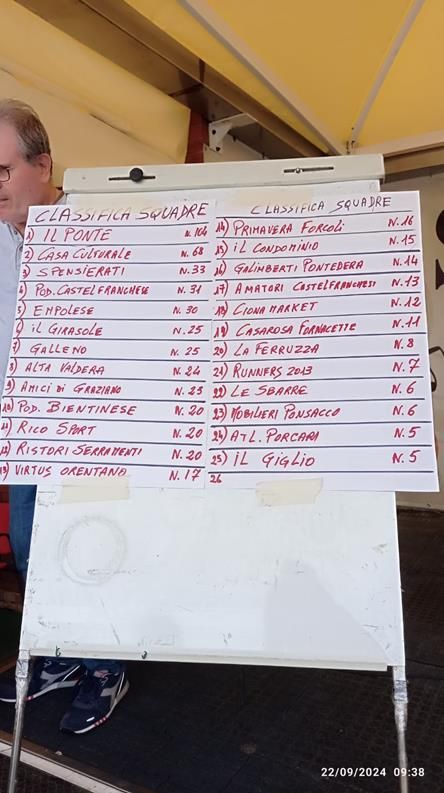 CLASSIFICA SQUADRE
1) IL PONTE N. 104
2) CASA CULTURALE N. 68
3) SPENSIERATI N. 33
4) POD. CASTELFRANCHESE N. 31
5) EMPOLESE N. 30
6) IL GIRASOLE N. 25
7) GALLENO N. 25
8) ALTA VALDERA N. 24
9) AMICI DI GRAZIANO N. 23
10) POD. BIENTINESE N. 20
11) RICO SPORT N. 20
12) RISTORI SERRAMENTI N. 20
13) VIRTUS ORENTANO N. 17
CLASSIFICA SQUADRE
14) PRIMAVERA FORCOLI N. 16
15) IL CONDOMINIO N. 15
16) GALIMBERTI PONTEDERA N. 14
17) AMATORI CASTELFRANCHESI N. 13
18) CIONAMARKET N. 12
19) CASAROSA FORNACETTE N. 11
20) LA FERRUZZA N. 8
21) RUNNERS 2013 N. 7
22) LE SBARRE N. 6
23) MOBILIERI PONSACCO N. 6
24) ATL. PORCARI N. 5
25) IL GIGLIO N. 5
26
22/09/2024 09:38